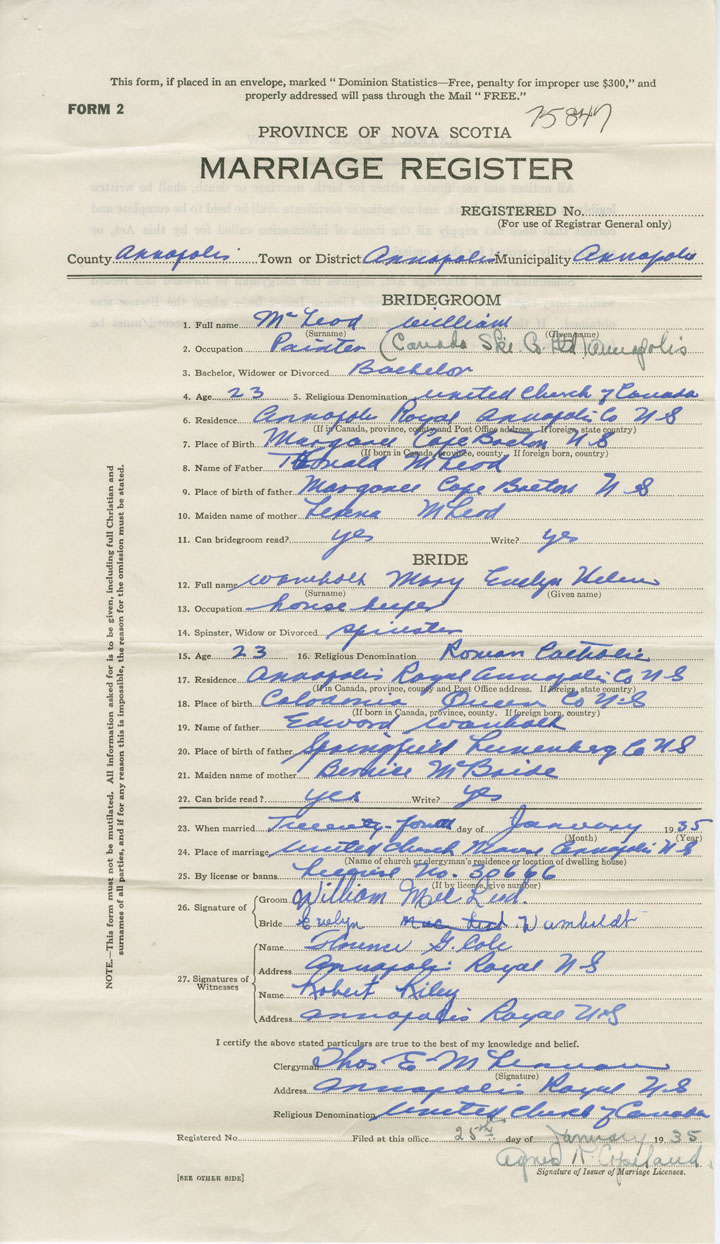 This form, if placed in an envelope, marked " Dominion Statistics—Free, penalty for improper use $300," and
properly addressed will pass through the Mail " FREE."
FORM 2
75847
PROVINCE OF NOVA SCOTIA
MARRIAGE REGISTER
REGISTERED No.
(For use of Registrar General only)
County Annapolis Town or District Annapolis Municipality Annapolis
BRIDEGROOM
1. Full name McLeod William
(Surname) (Given name)
2. Occupation Painter (Canada Ski Co. Ltd) Annapolis
3. Bachelor, Widower or Divorced Bachelor
4. Age 23 5. Religious Denomination United Church of Canada
6. Residence Annapolis Royal Annapolis Co N S
(If in Canada, province, county and Post Office address. If foreign, state country)
7. Place of Birth Margaree Cape Breton N S
(If born in Canada, province, county. If foreign born, country)
8. Name of Father Donald McLeod
9. Place of birth of father Margaree Cape Breton N S
10. Maiden name of mother McLeod
11. Can bridegroom read? yes Write? yes
BRIDE
12. Full name Wamholt Mary Evelyn Helen
(Surname) (Given name)
13. Occupation house keeper
14. Spinster, Widow or Divorced spinster
15. Age 23 16. Religious Denomination Roman Catholic
17. Residence Annapolis Royal Annapolis Co N S
(If in Canada, province, county and Post Office address. If foreign, state country)
18. Place of birth Caledonia Queens Co N S
(If born in Canada, province, county. If foreign born, country)
19. Name of father Edward Wamholt
20. Place of birth of father Springfield Lunenberg Co N S
21. Maiden name of mother Bernice McBride
22. Can bride read? yes Write? yes
23. When married Twenty-fourth day of January 1935
(Month) (Year)
24. Place of marriage United Church Manse Annapolis N S
(Name of church or clergyman's residence or location of dwelling house)
25. By license or banns License No. 30666
(If by license, give number)
26. Signature of
Groom William Mac Leod.
Bride Evelyn Mac Leod Wamholdt
27. Signatures of Witnesses
Name Florence G. Cole
Address Annapolis Royal N S
Name Robert Riley
Address Annapolis Royal N S
I certify the above stated particulars are true to the best of my knowledge and belief.
Clergyman Thos E McLennan
(Signature)
Address Annapolis Royal N S
Religious Denomination United Church of Canada
Registered No. Filed at this office 25th day of January 1935
Agnes Copeland
Signature of Issuer of Marriage Licenses.
[SEE OTHER SIDE]
NOTE.—This form must not be mutilated. All information asked for is to be given, including full Christian and
surnames of all parties, and if for any reason this is impossible, the reason for the omission must be stated.